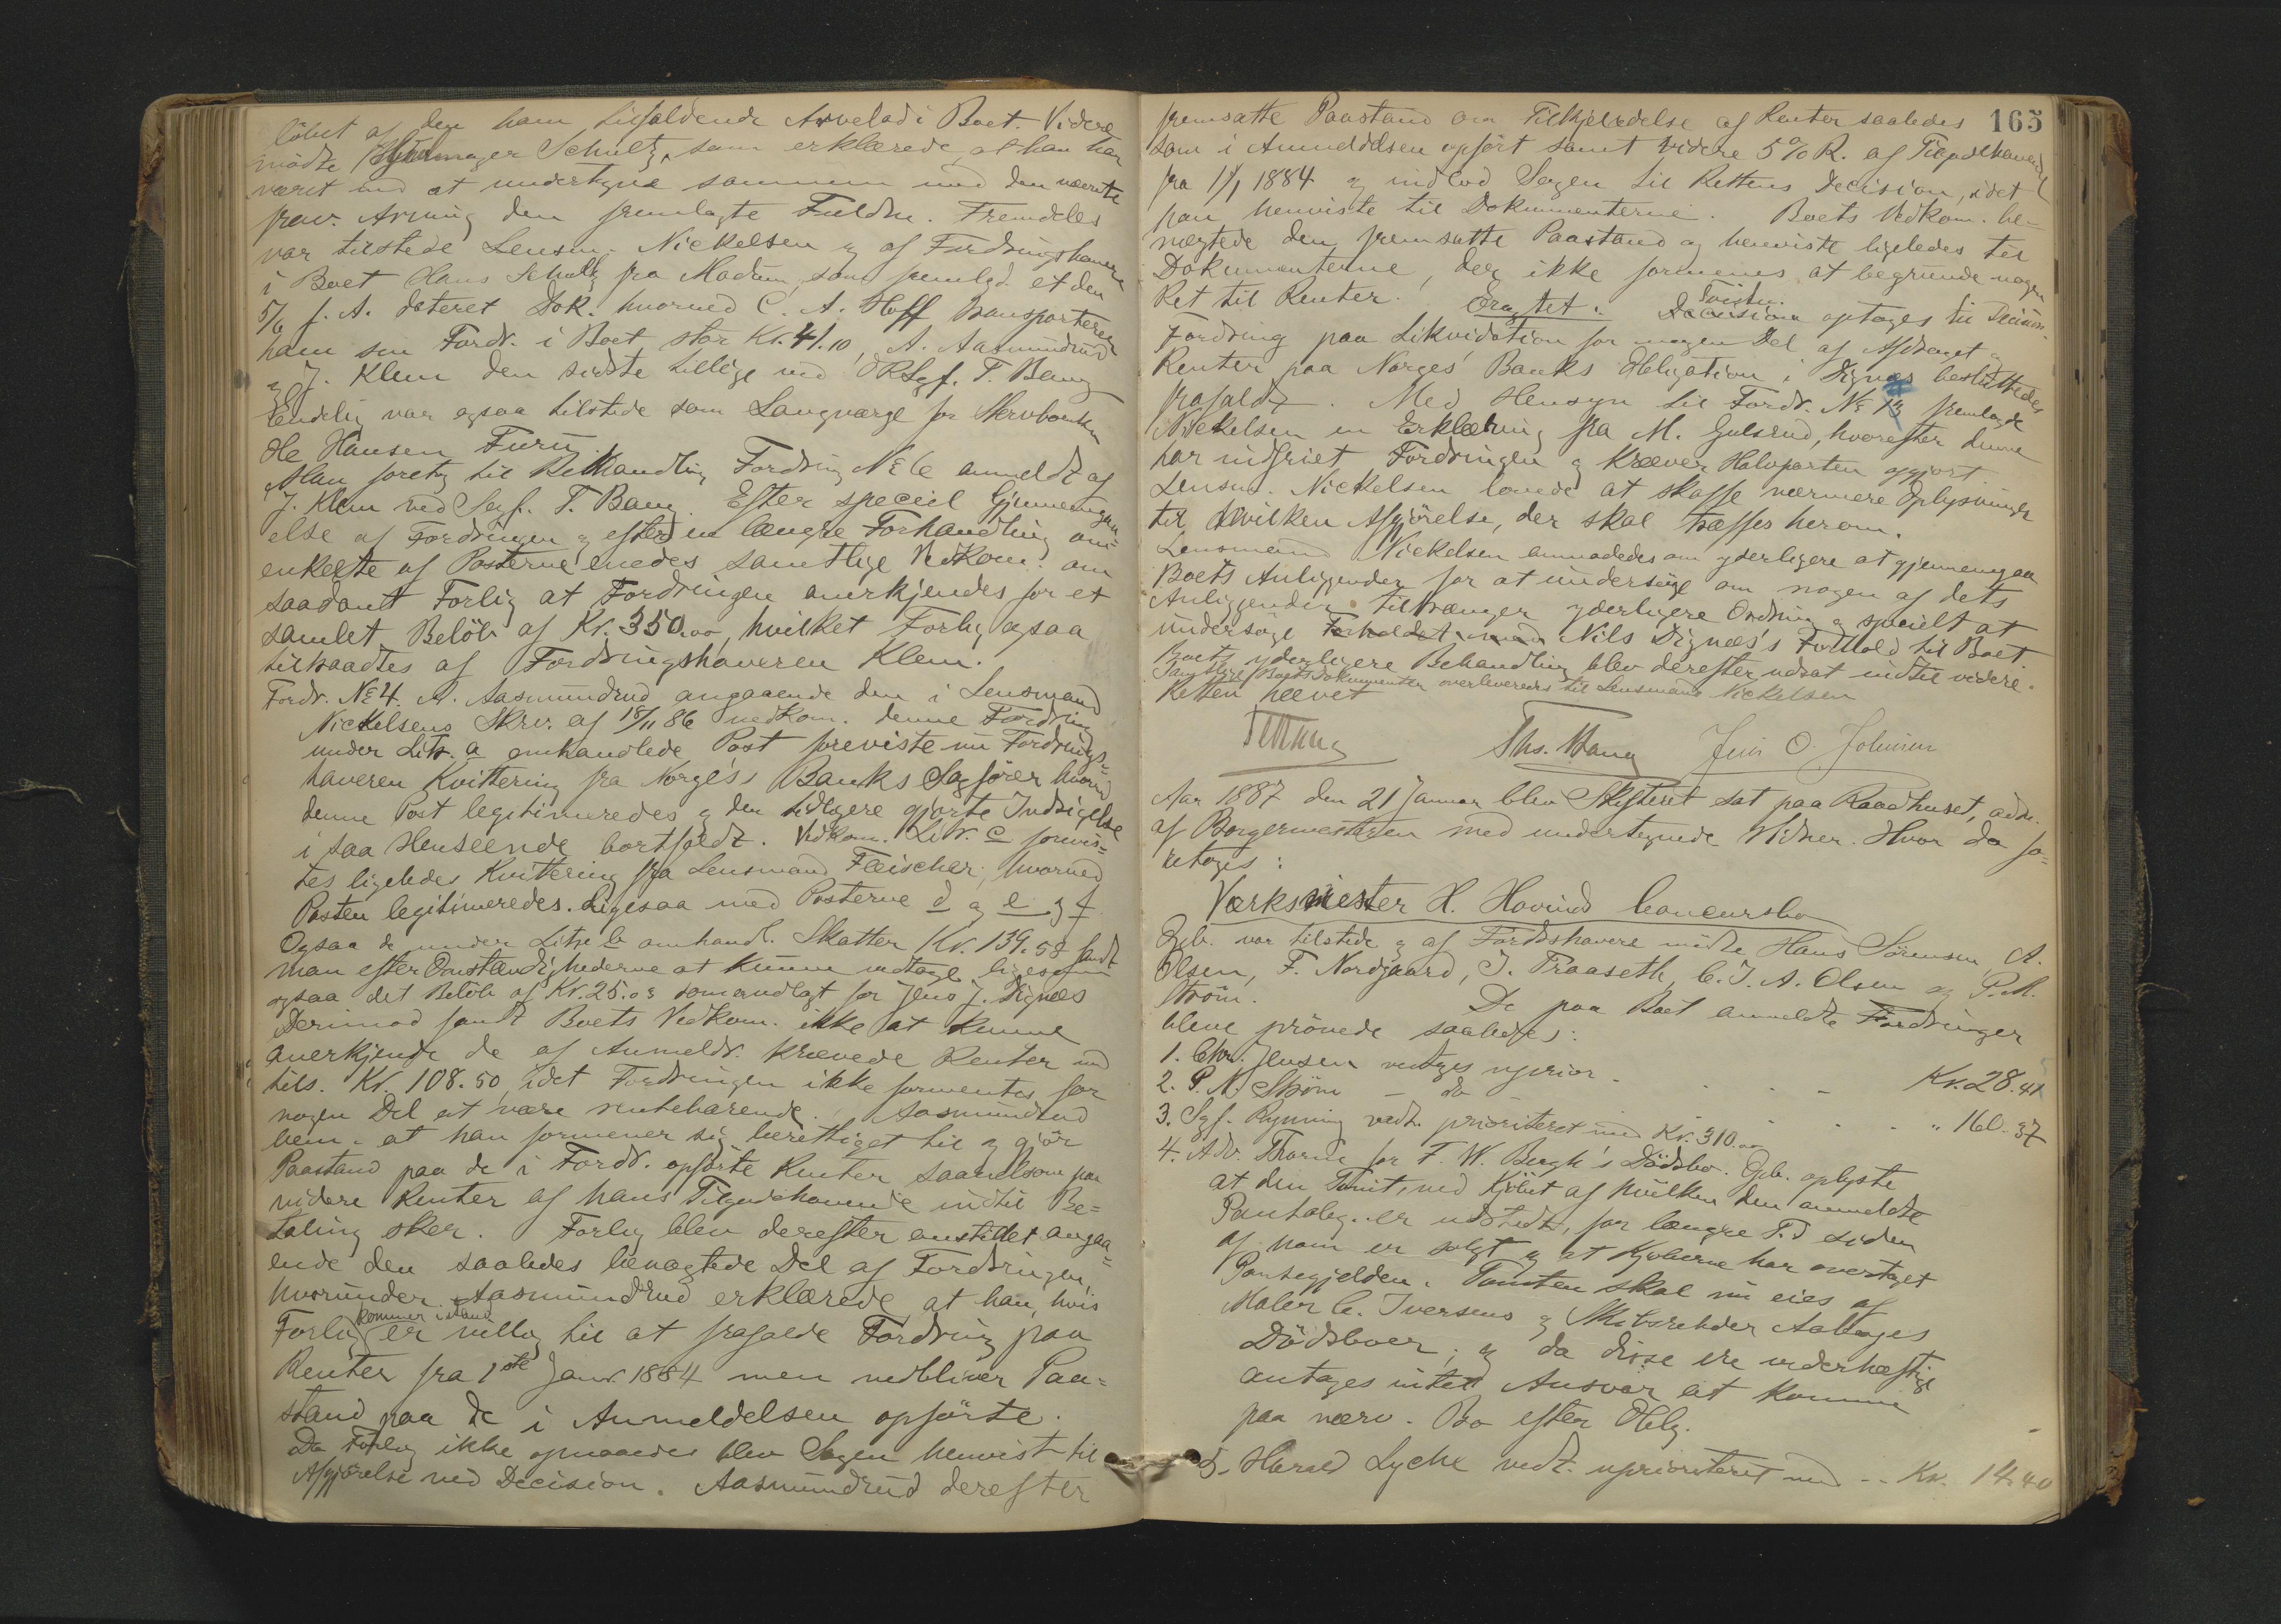 löbet af den ham tilfaldende Arvelod i Boet. Videre
mödte Schultz, som erklærede, at han har
været med at undertegne sammen med den nævnte
den fremlagte Fuldm. Fremdeles
var tilstede Lensm. Nickelsen og af Fordringshavere
i Boet Hans Schultz fra Modum, som freml. et den
5/6 f. A. dateret Dok. hvorved C. A. Hoff transporterer
ham sin Fordr. i Boet stor Kr. 41.10, A. Aasmundrud
og J. Klem den sidste tillige med ORSgf. T. Bang
Endelig var ogsaa tilstede som Laugværge for
Hansen Furu.
Man foretog til Behandling Fordring No 6 anmeldt af
J. Klem ved Sagf. T. Bang. Efter speciel Gjennemgaa-
else af Fordringen og efter en længre Forhandling om
enkelte af Posterne enedes samtlige Vedkom. om
saadant Forlig at Fordringen anerkjendes for et
samlet Belöb af Kr. 350.00, hvilket Forlig ogsaa
tiltraadtes af Fordringshaveren Klem.
Fordr. No 4. A. Aasmundrud angaaende den i Lensmand
Nickelsens Skrv. af 18/11 86 vedkom. denne Fordring
under Litr. a omhandlede Post foreviste nu Fordrings-
haveren Kvittering fra Norges Banks Sagförer hvorved
denne Post legitimeredes og den tidligere gjorte Indsigelse
i saa Henseende bortfaldt. Vedkom. Litr. c forevis-
tes ligeledes Kvittering fra Lensmand Fleischer, hvorved
Posten legitimeredes. Ligesaa med Posterne d og e og f
Ogsaa de under Litr b omhandl. Skatter Kr. 139.58 fandt
man efter Omstændighederne at kunne vedtage ligesom
ogsaa det Belöb af Kr. 25.03 som udlagt for Jens J. Tignæs
Derimod fandt Boets Vedkom. ikke at kunne
anerkjende de af Anmeldr. krævede Renter med
tils. Kr. 108.50, idet Fordringen ikke formentes for
nogen Del at være rentebærende. Aasmundrud
bem. at han formener sig berettiget til og gjör
Paastand paa de i Fordr. opförte Renter saavelsom paa
videre Renter af hans Tilgodehavende indtil Be-
taling sker. Forlig blev derefter anstillet angaa-
ende den saaledes benægtede Del af Fordringen,
hvorunder Aasmundrud erklærede, at han, hvis
Forlig kommer istand er villig til at frafalde Fordring paa
Renter fra 1ste Janr. 1884 men vedbliver Paa-
stand paa de i Anmeldelsen opförte.
Da Forlig ikke opnaaedes blev Sagen henvist til
Afgjörelse ved Decision. Aasmundrud derefter
165
fremsatte Paastand om Tilkjendelse af Renter saaledes
som i Anmeldelsen opfört samt videre 5% R. af Tilgodehavendet
fra 1/1 1884 og indlod Sagen til Rettens Decision, idet
han henviste til Dokumenterne. Boets Vedkom. be-
nægtede den fremsatte Paastand og henviste ligeledes til
Dokumenterne, der ikke formenes at begrunde nogen
Ret til Renter.
Eragtet: Tvisten optages til Decision.
Fordring paa Likvidation for nogen Del af Afdraget og
Renter paa Norges Banks Obligation i Tignæs besluttedes
frafaldt. Med Hensyn til Fordr. No 13 fremlagde
Nickelsen en Erklæring fra M. Gulsrud, hvorefter denne
har indfriet Fordringen og kræver Halvparten opgjort
Lensm. Nickelsen lovede at skaffe nærmere Oplysninger
til hvilken Afgjörelse, der skal træffes herom.
Lensmand Nickelsen anmodedes om yderligere at gjennemgaa
Boets Anliggender for at undersöge om nogen af dets
Anliggender tiltrænger yderligere Ordning og specielt at
undersöge Forholdet med Nils Tignæs's Forhold til Boet.
Boets yderligere Behandling blev derefter udsat indtil videre.
Samtlige Boets Dokumenter overleveredes til Lensmand Nickelsen
Retten hævet
Ths. Bang Jens O. Johnsen
Aar 1887 den 21 Januar blev Skifteret sat paa Raadhuset, adm.
af Borgermesteren med undertegnede Vidner. Hvor da fo-
retoges:
Værksmester H. Hovinds Concursbo
Geb. var tilstede og af Fordrshavere mödte Hans Sörensen, A.
Olsen, F. Nordgaard, J. Traaseth, C. J. A. Olsen og P. N.
Ström. De paa Boet anmeldte Fordringer
bleve prövede saaledes:
1. Chr. Jensen vedtages uprior. - - - Kr. 28.41
2. P. N. Ström - do - - - " 160.37
3. Sgf. Rynning vedt. prioriteret med Kr. 310.00
4. Adv. Thorne for F. W. Bergh's Dödsbo. Geb. oplyste
at den Tomt, ved Kjöbet af hvilken den anmeldte
Pantoblg. er udstedt, for længre Tid siden
af ham er solgt og at Kjöberne har overtaget
Pantegjelden. Tomten skal nu eies af
Maler C. Iversens og Skibsreder Aabyes
Dödsboer, og da disse ere vederhæftige
antages intet Ansvar at komme
paa nærv. Bo efter Oblg. -
5. Harald Lyche vedt. uprioriteret med -- Kr. 14.40